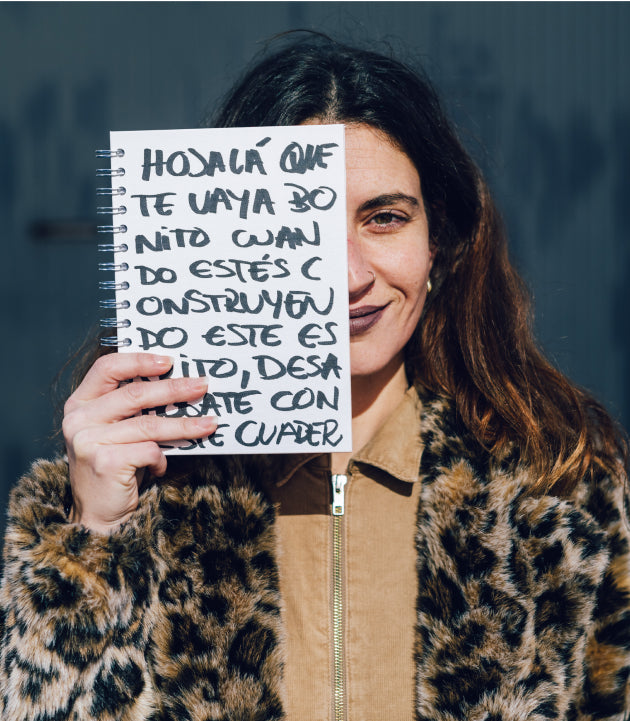 HOJALÁ QUE
TE VAYA BO
NITO CUAN
DO ESTÉS C
ONSTRUYEN
DO ESTE ES
ITO, DESA
HÓGATE CON
ESTE CUADER